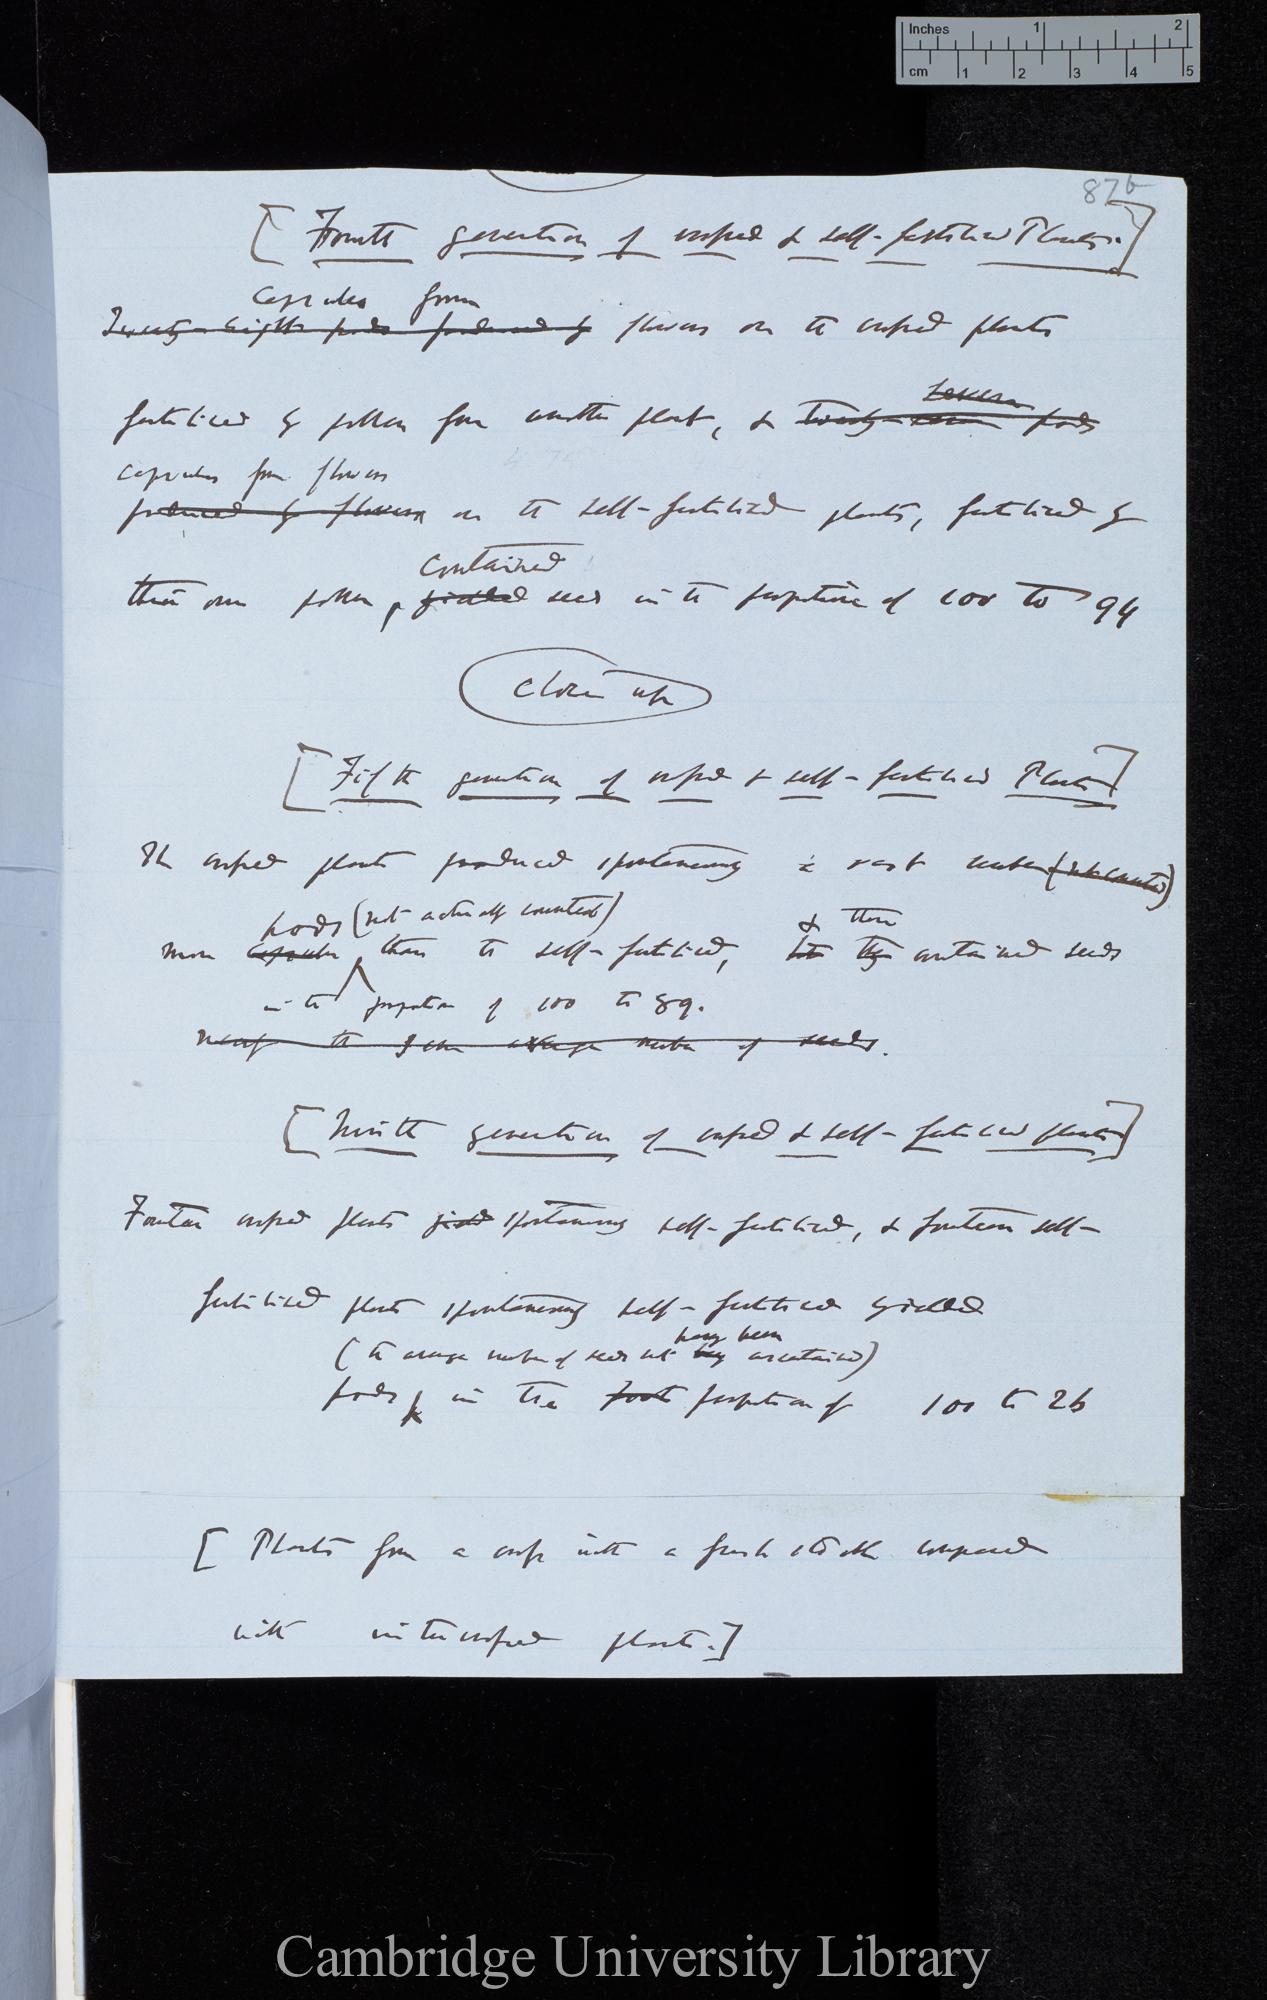 Inches 1 2
cm 1 2 3 4 5
87b
[Fourth generation of crossed & self-fertilised Plants.]
Capsules from
Twenty-eight pods produced by flowers on the crossed plants
seven
fertilised by pollen from another plant, & twenty-seven pods
capsules from flowers
produced by flowers on the self-fertilised plants, fertilised by
contained
their own pollen, yielded seeds in the proportion of 100 to 94
close up
[Fifth generation of crossed & self-fertilised Plants]
The crossed plants produced spontaneously a vast number (not counted)
pods (not actually counted) & these
more capsules than the self-fertilised, but they contained seeds
in the proportion of 100 to 89.
nearly the same average number of seeds.
[Ninth generation of crossed & self-fertilised plants]
Fourteen crossed plants yield spontaneously self-fertilised, & fourteen self-
fertilised plants spontaneously self-fertilised yielded
having been
(the average number of seeds not being ascertained)
pods, in the proportion of 100 to 26
[Plants from a cross with a fresh stock compared
with intercrossed plants.]
Cambridge University Library